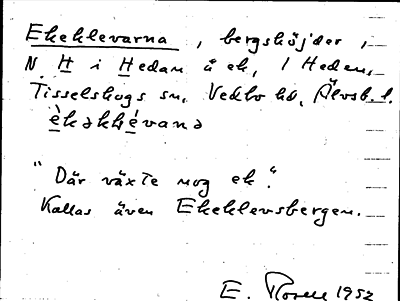 Ekeklevarna, bergshöjder,
N H i Hedan å ek, 1 Heden,
Tisselskogs sn, Vedbo hd, Älvsb. l.
èkəklévanə
"Där växte nog ek".
Kallas även Ekeklevsbergen.
E. Rosell 1952